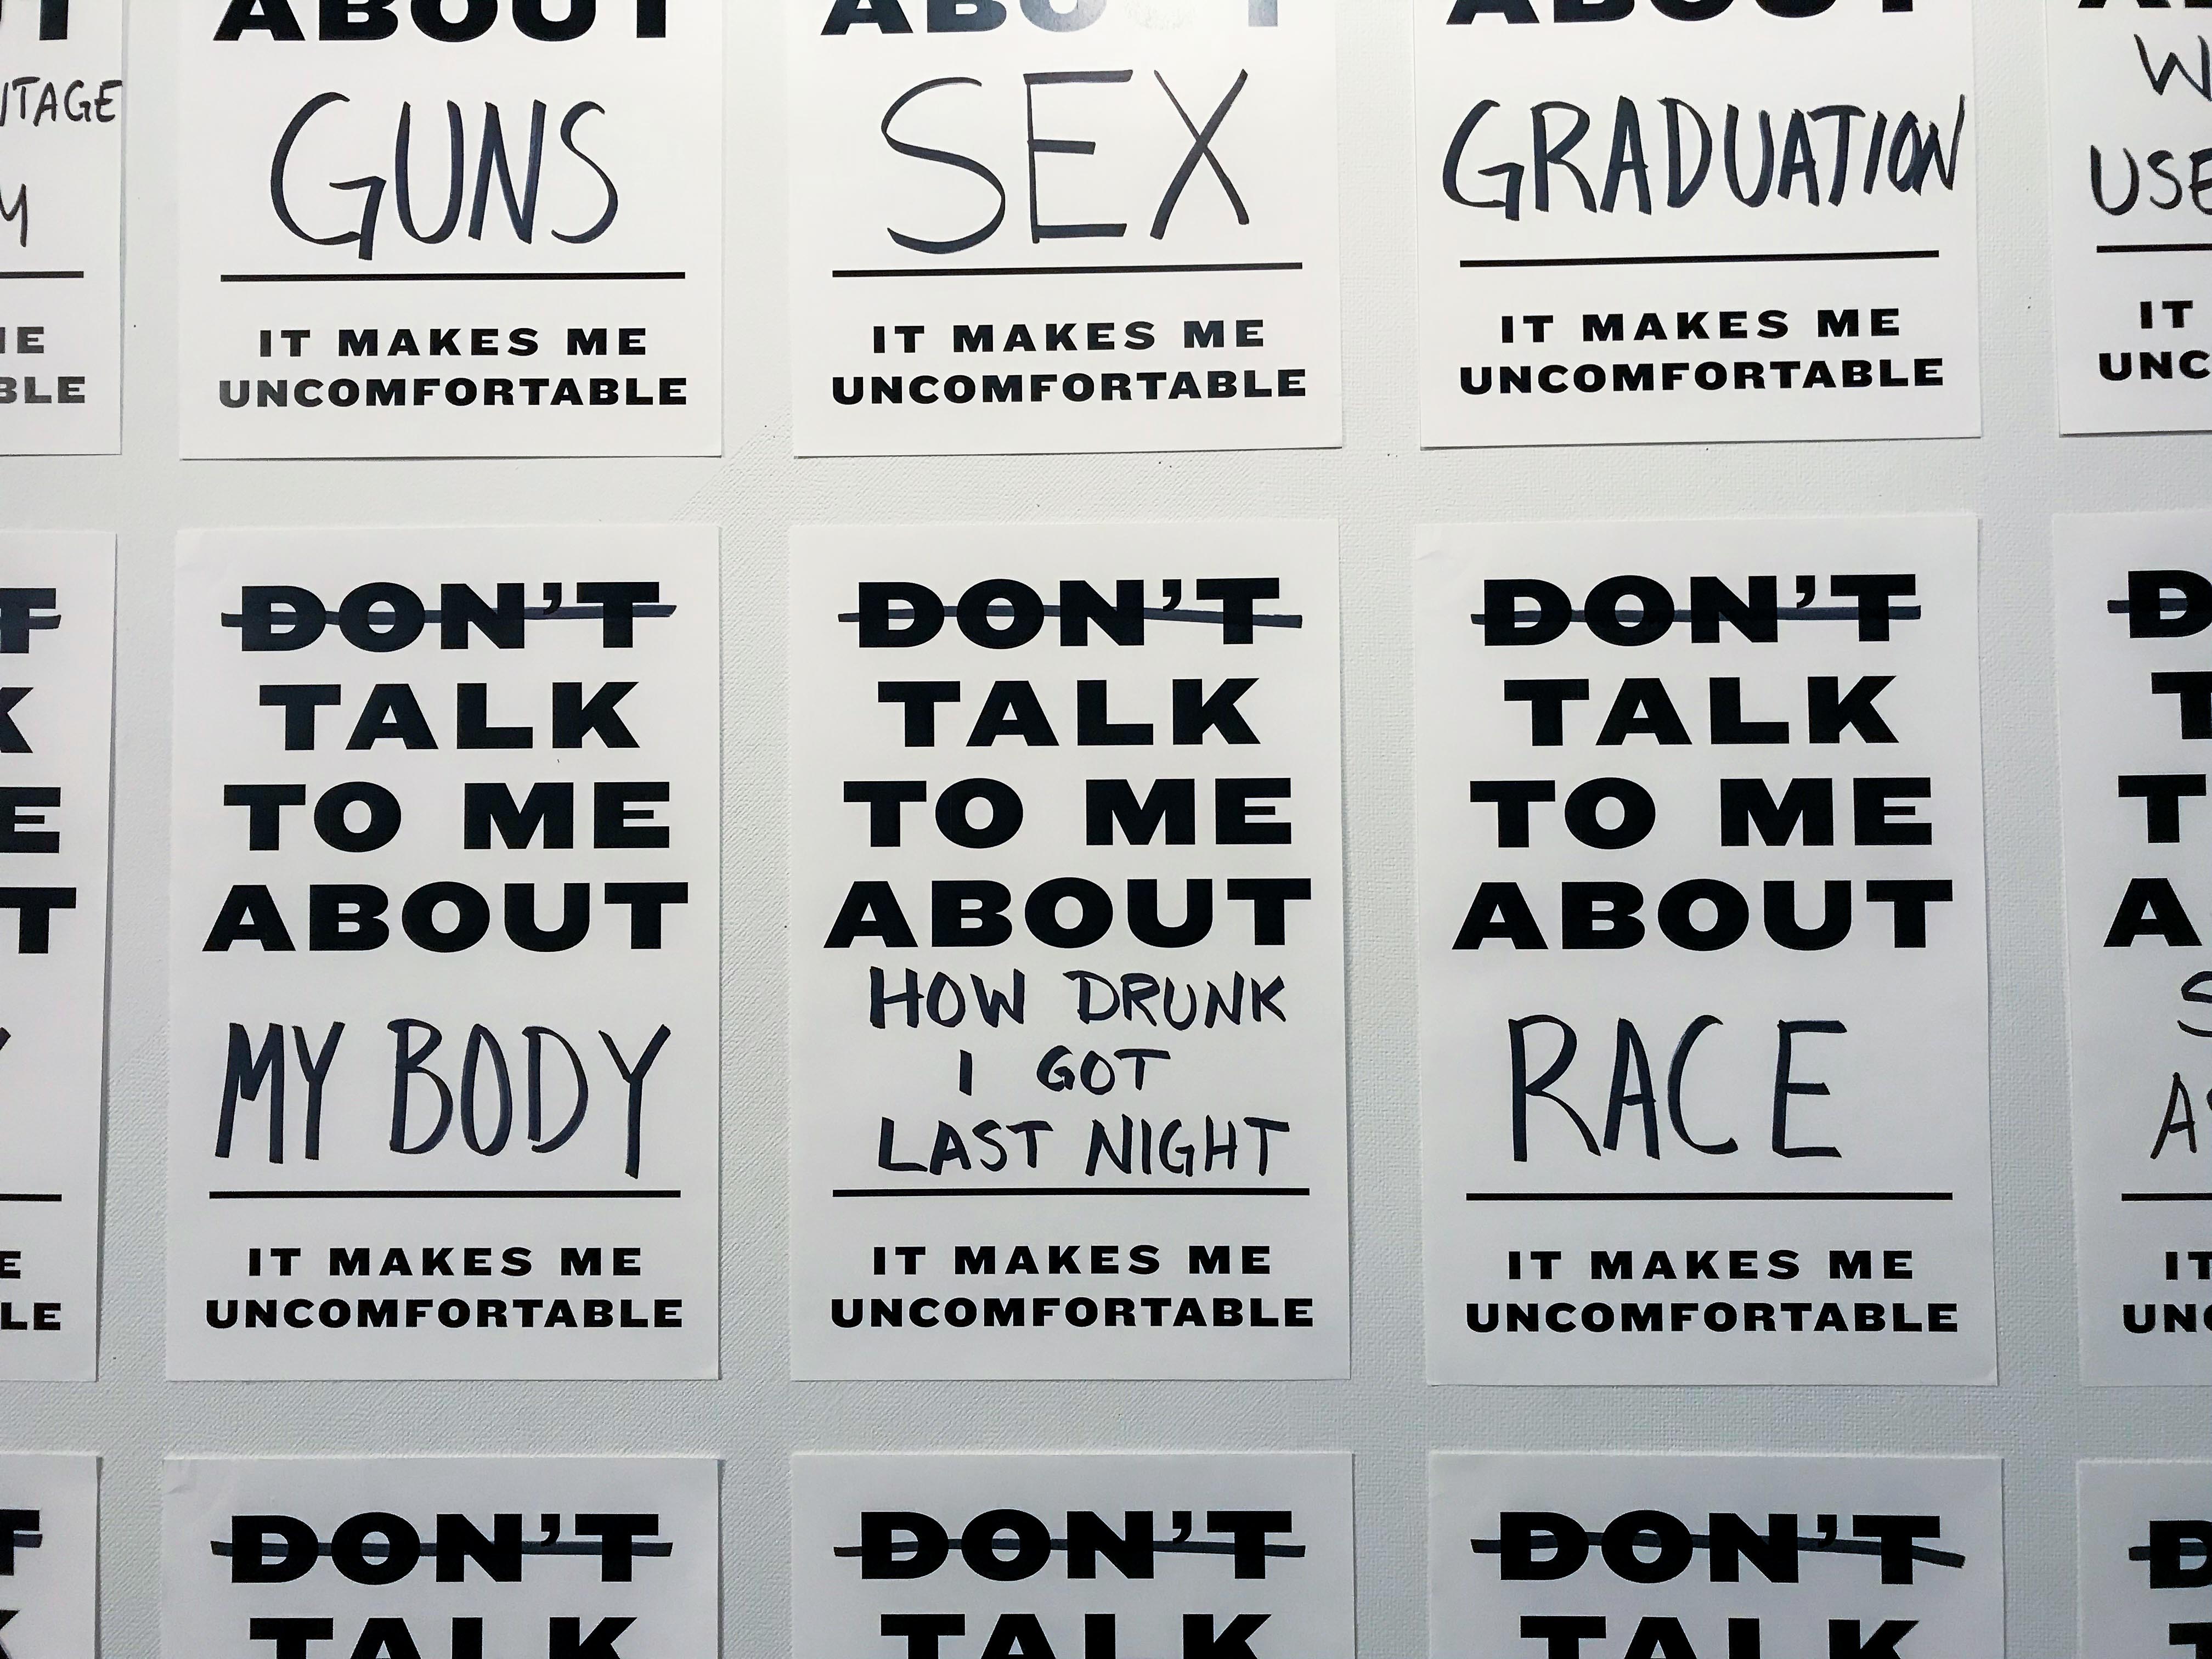 ABOUT
GUNS
IT MAKES ME
UNCOMFORTABLE
ABOUT
SEX
IT MAKES ME
UNCOMFORTABLE
ABOUT
GRADUATION
IT MAKES ME
UNCOMFORTABLE
USE
IT
DON'T
TALK
TO ME
ABOUT
MY BODY
IT MAKES ME
UNCOMFORTABLE
DON'T
TALK
TO ME
ABOUT
HOW DRUNK
I GOT
LAST NIGHT
IT MAKES ME
UNCOMFORTABLE
DON'T
TALK
TO ME
ABOUT
RACE
IT MAKES ME
UNCOMFORTABLE
DON'T
TALK
DON'T
TALK
DON'T
TALK